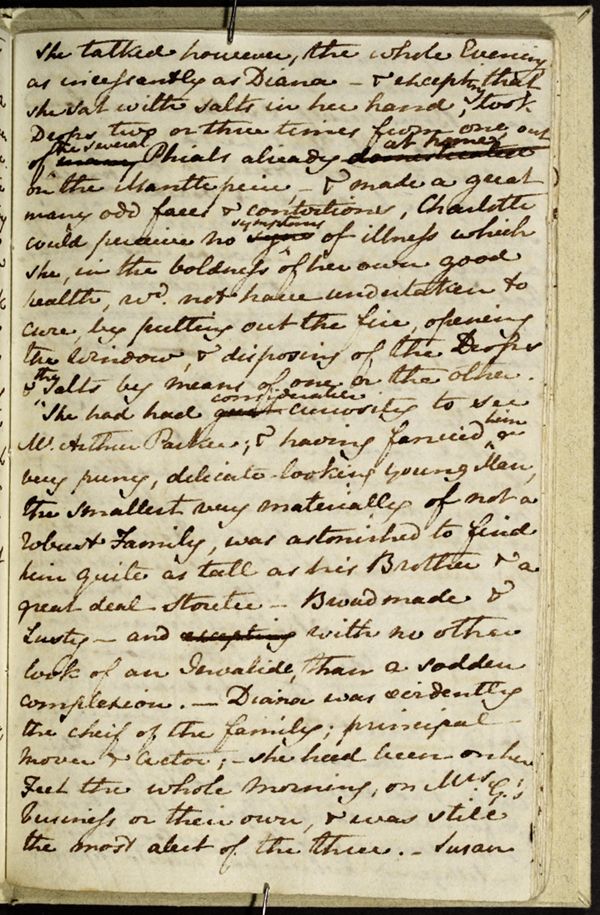 she talked however, the whole Evening
as incessantly as Diana – & excepting that
she sat with salts in her hand, took
Drops two or three times from one, out
of the several many Phials already at home domesticated
on the Mantlepeice, – & made a great
many odd faces & contortions, Charlotte
could perceive no symptoms signs of illness which
she, in the boldness of her own good
health, wd. not have undertaken to
cure, by putting out the fire, opening
the Window, & disposing of the Drops
& the salts by means of one or the other.
She had had considerable great curiosity to see
Mr. Arthur Parker; & having fancied him a
very puny, delicate-looking young Man,
the smallest very materially of not a
robust Family, was astonished to find
him quite as tall as his Brother & a
great deal Stouter – Broad made &
Lusty – and excepting with no other
look of an Invalide, than a sodden
complexion. – Diana was evidently
the cheif of the family; principal
Mover & Actor; – she had been on her
Feet the whole Morning, on Mrs. G.'s
business or their own, & was still
the most alert of the three. – Susan